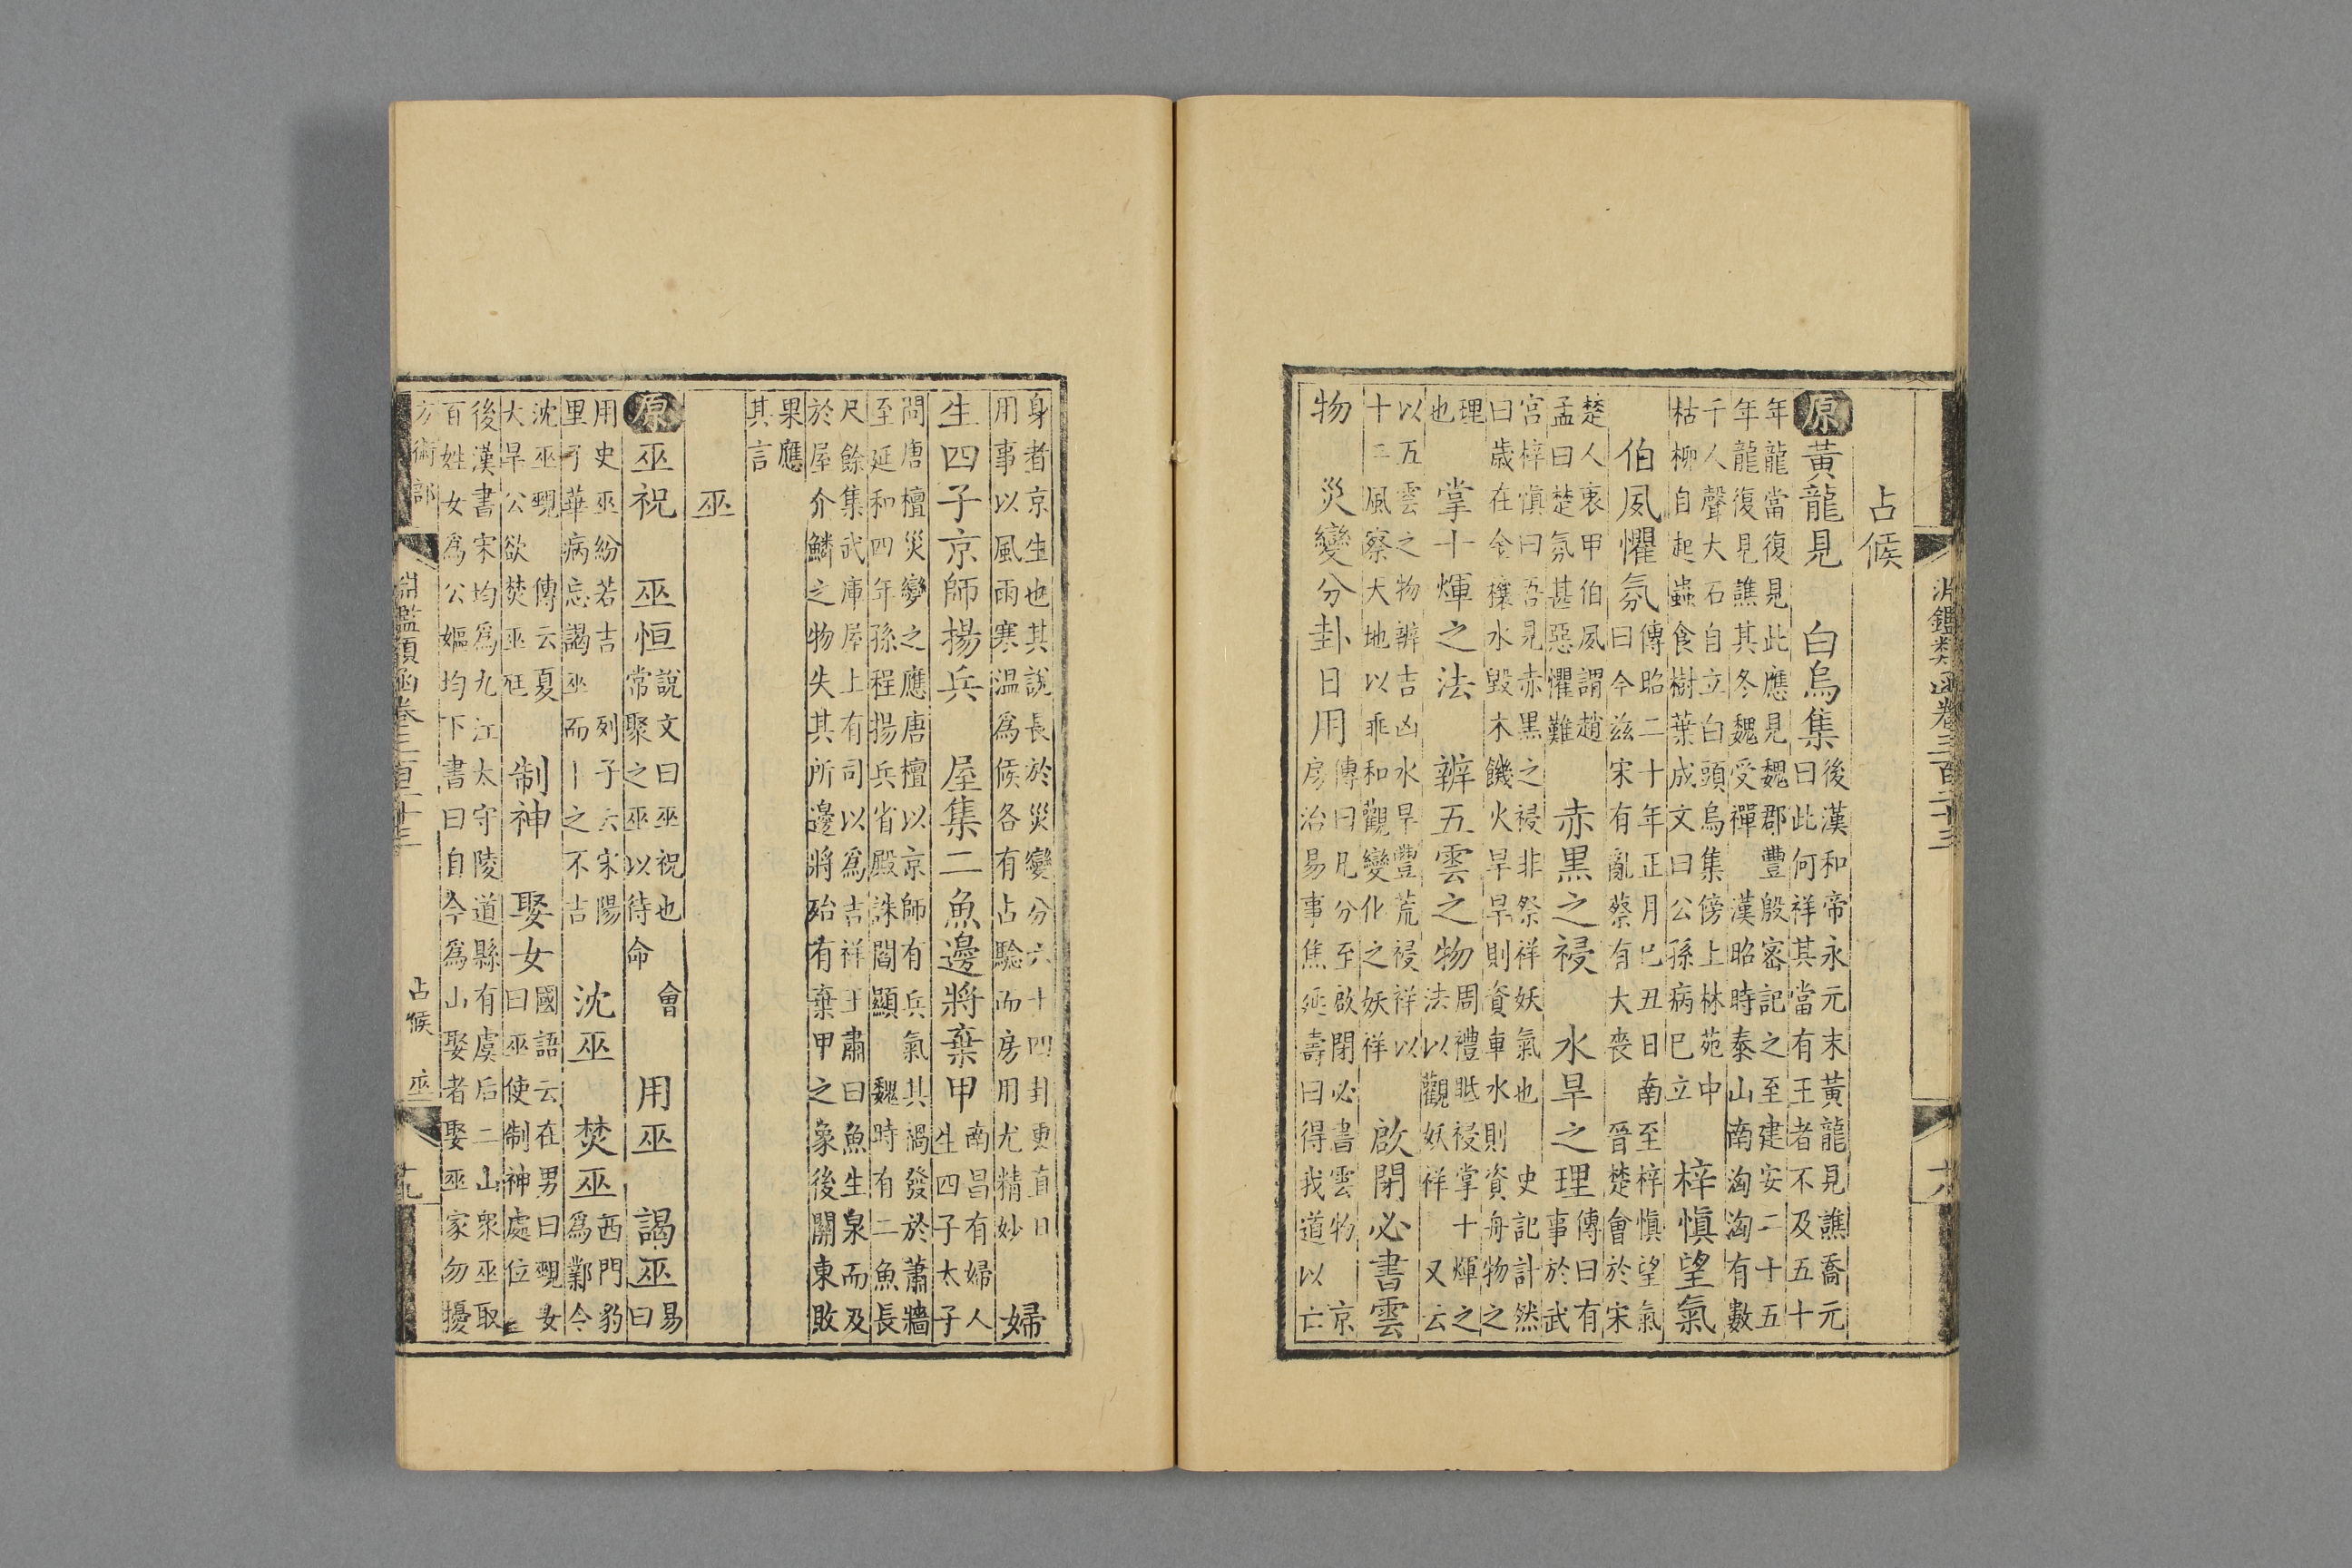 淵鑑類函卷三百二十三
占候
原黃龍見 白烏集後漢和帝永元末黃龍見譙喬元
曰此何祥其當有王者不及五十
年龍當復見此應見魏郡豐殷密記之至建安二十五
年龍復見譙其冬魏受禪 漢昭時泰山南洶洶有數
千人聲大石自立白頭烏集傍上林苑中
枯柳自起蟲食樹葉成文曰公孫病已立
梓慎望氣
伯夙懼氛傳昭二十年正月己丑日南至梓慎望氣
曰今茲宋有亂蔡有大喪 晉楚會於宋
楚人衷甲伯夙謂趙
孟曰楚氛甚惡懼難
赤黑之祲 水旱之理傳曰有
事於武
宮梓慎曰吾見赤黑之祲非祭祥妖氣也 史記計然
曰歲在金穰水毀木饑火旱旱則資車水則資舟物之
理
也
掌十煇之法 辨五雲之物周禮眡祲掌十煇之
法以觀妖祥 又云
以五雲之物辨吉凶水旱豐荒祲祥以
十二風察天地以乖和觀變化之妖祥
啟閉必書雲
物 災變分卦日用傳曰凡分至啟閉必書雲物 京
房治易事焦延壽曰得我道以亡
身者京生也其說長於災變分六十四卦更直日
用事以風雨寒温為候各有占驗而房用尤精妙
婦
生四子京師揚兵 屋集二魚邊將棄甲南昌有婦人
生四子太子
問唐檀災變之應唐檀以京師有兵氣其禍發於蕭牆
至延和四年孫程揚兵省殿誅閻顯 魏時有二魚長
尺餘集武庫屋上有司以為吉祥王肅曰魚生泉而及
於屋介鱗之物失其所邊將殆有棄甲之象後關東敗
果應
其言
巫
原巫祝 巫恒說文曰巫祝也 會
常聚之巫以待命
用巫 謁巫易
曰
用史巫紛若吉 列子云宋陽
里子華病忘謁巫而丨之不吉
沈巫 焚巫西門豹
為鄴令
沈巫覡 傳云夏
大旱公欲焚巫尫
制神 娶女國語云在男曰覡女
曰巫使制神處位
後漢書宋均為九江太守陵道縣有虞后二山眾巫取
百姓女為公嫗均下書曰自今為山娶者娶巫家勿擾
方術部 淵鑑類函卷三百二十三 占候 巫 十九